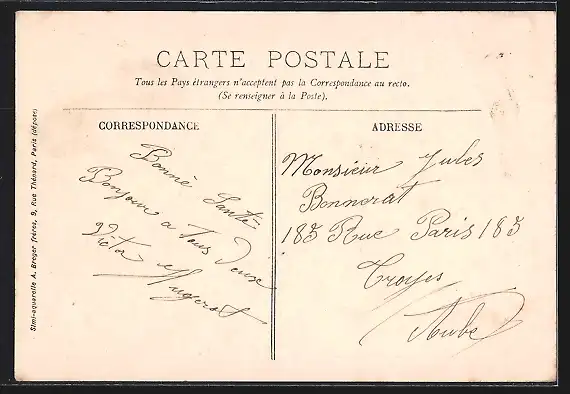 CARTE POSTALE
Tous les Pays étrangers n'acceptent pas la Correspondance au recto.
(Se renseigner à la Poste).
CORRESPONDANCE
Bonne Santé
Bonjour a Tous Deux
Victor
ADRESSE
Monsieur Jules
Bonnerat
185 Rue Paris 185
Troyes
Aube
Simi-aquarelle A. Breger frères, 9, Rue Thénard, Paris (déposé)